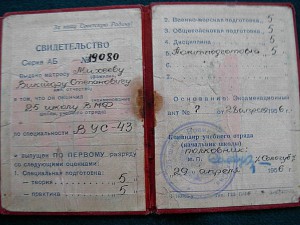 За нашу Советскую Родину!
СВИДЕТЕЛЬСТВО
Серия АБ № 19080
Выдано матросу Михееву
Виктору Степановичу
в том, что он окончил
25 школу ВМФ
по специальности ВУС-43
и выпущен ПО ПЕРВОМУ разряду
со следующими оценками:
1. Специальная подготовка:
— теория 5
— практика 5
2. Военно-морская подготовка 5
3. Общефизическая подготовка 5
4. Дисциплина 5
5. Политподготовка 5
Основание: Экзаменационный
акт № 7
Командир учебного отряда
(начальник школы)
полковник:
М.П.
29 апреля